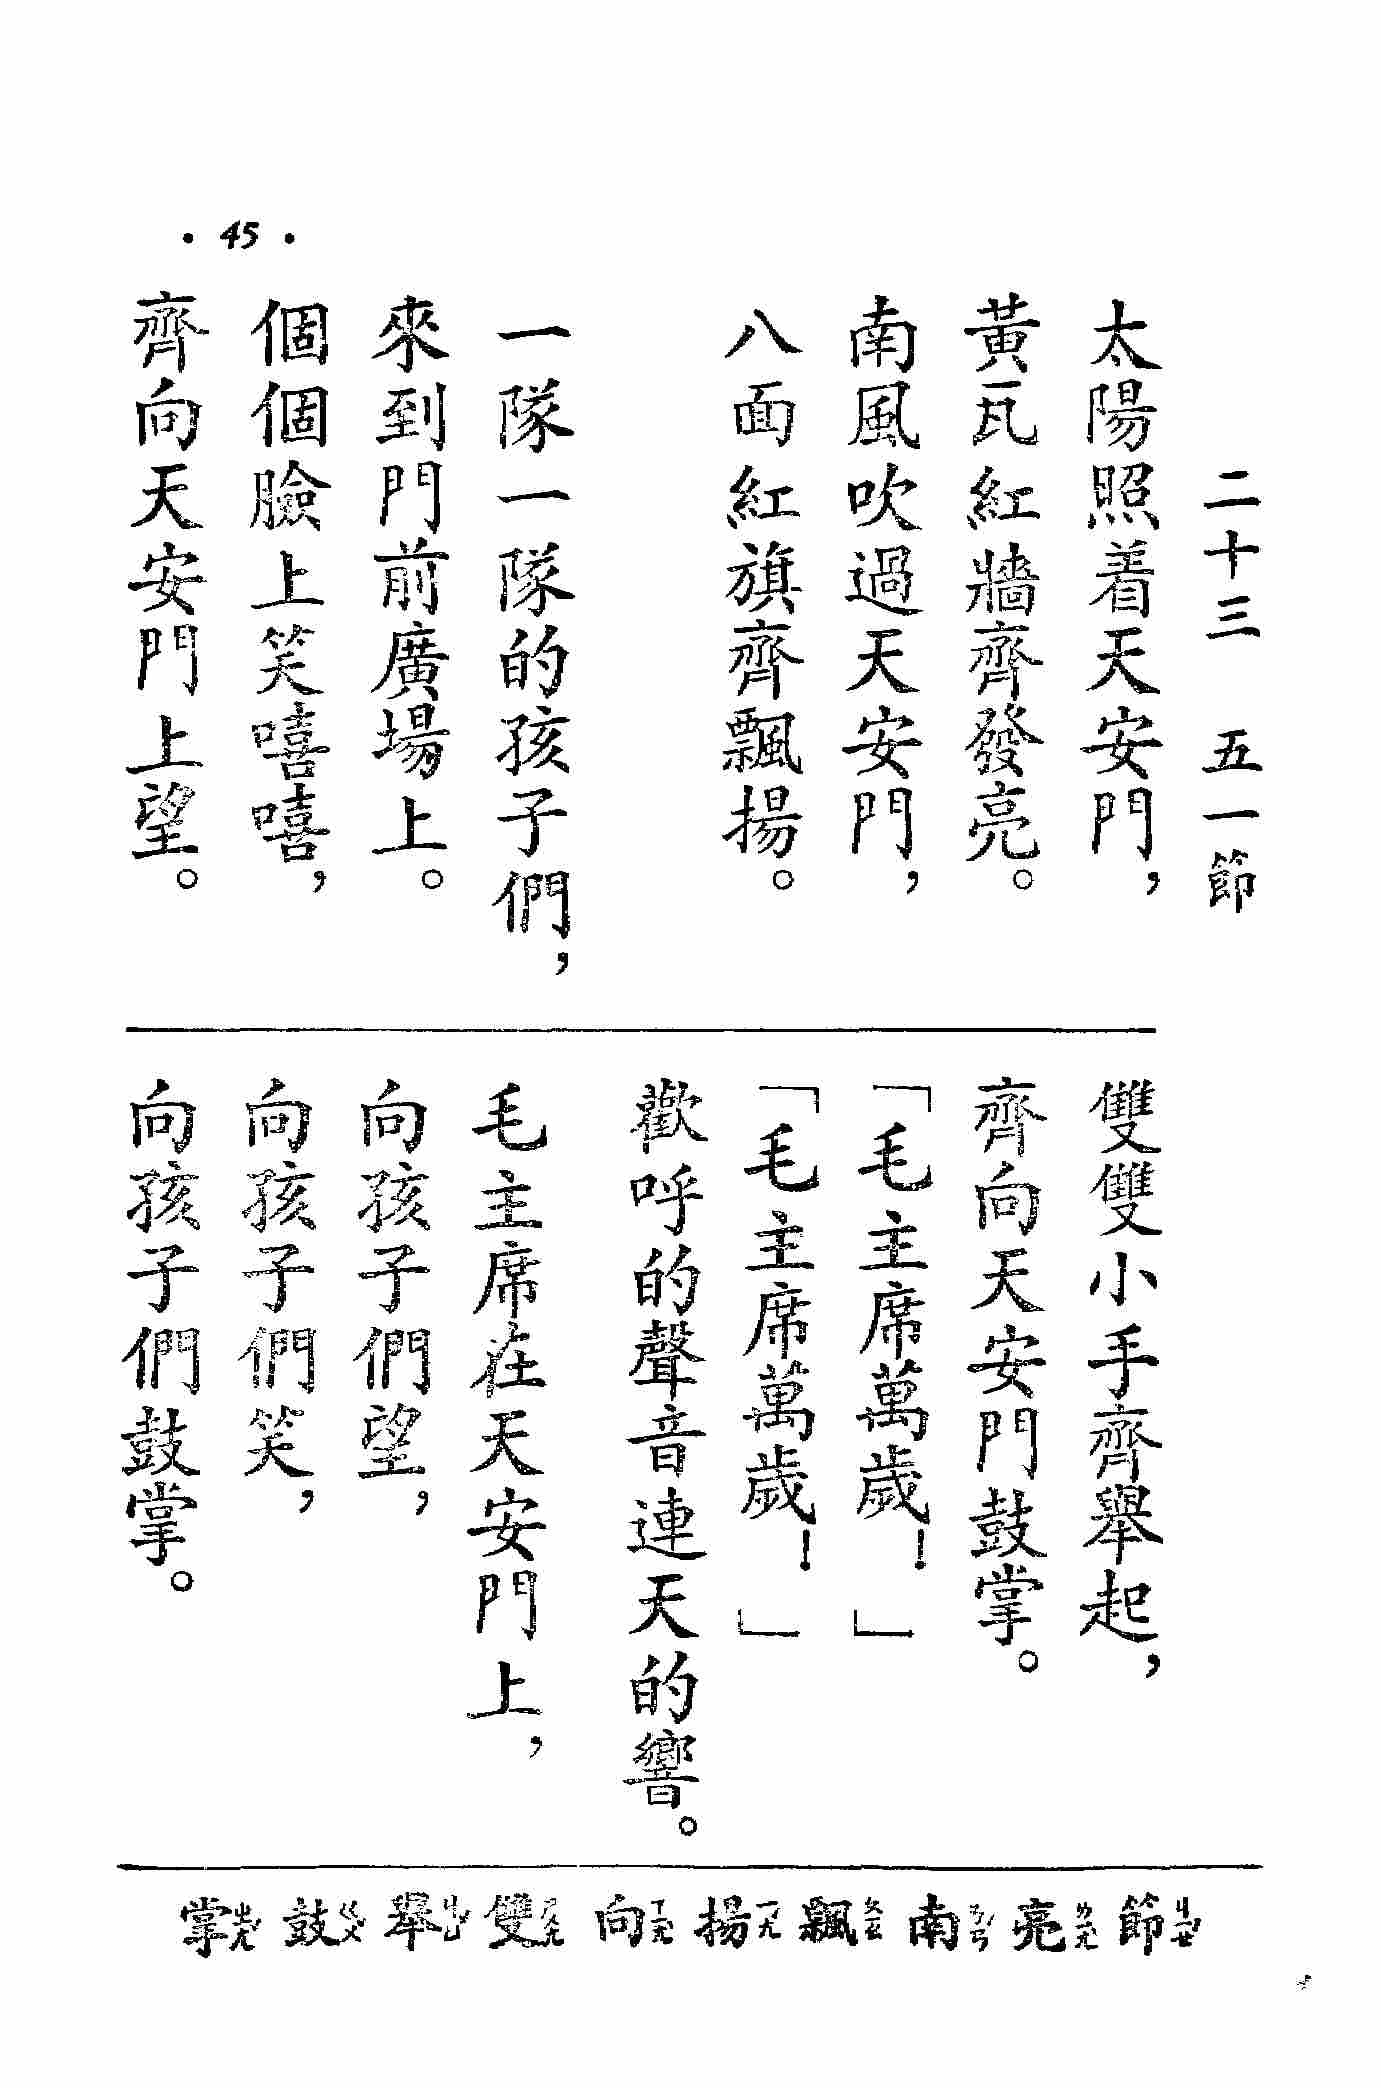 二十三　五一節
太陽照着天安門，
黃瓦紅牆齊發亮。
南風吹過天安門，
八面紅旗齊飄揚。
一隊一隊的孩子們，
來到門前廣場上。
個個臉上笑嘻嘻，
齊向天安門上望。
雙雙小手齊舉起，
齊向天安門鼓掌。
「毛主席萬歲！」
「毛主席萬歲！」
歡呼的聲音連天的響。
毛主席在天安門上，
向孩子們望，
向孩子們笑，
向孩子們鼓掌。
節ㄐㄧㄝˊ 亮ㄌㄧㄤˋ 南ㄋㄢˊ 飄ㄆㄧㄠ 揚ㄧㄤˊ 向ㄒㄧㄤˋ 雙ㄕㄨㄤ 舉ㄐㄩˇ 鼓ㄍㄨˇ 掌ㄓㄤˇ
• 45 •